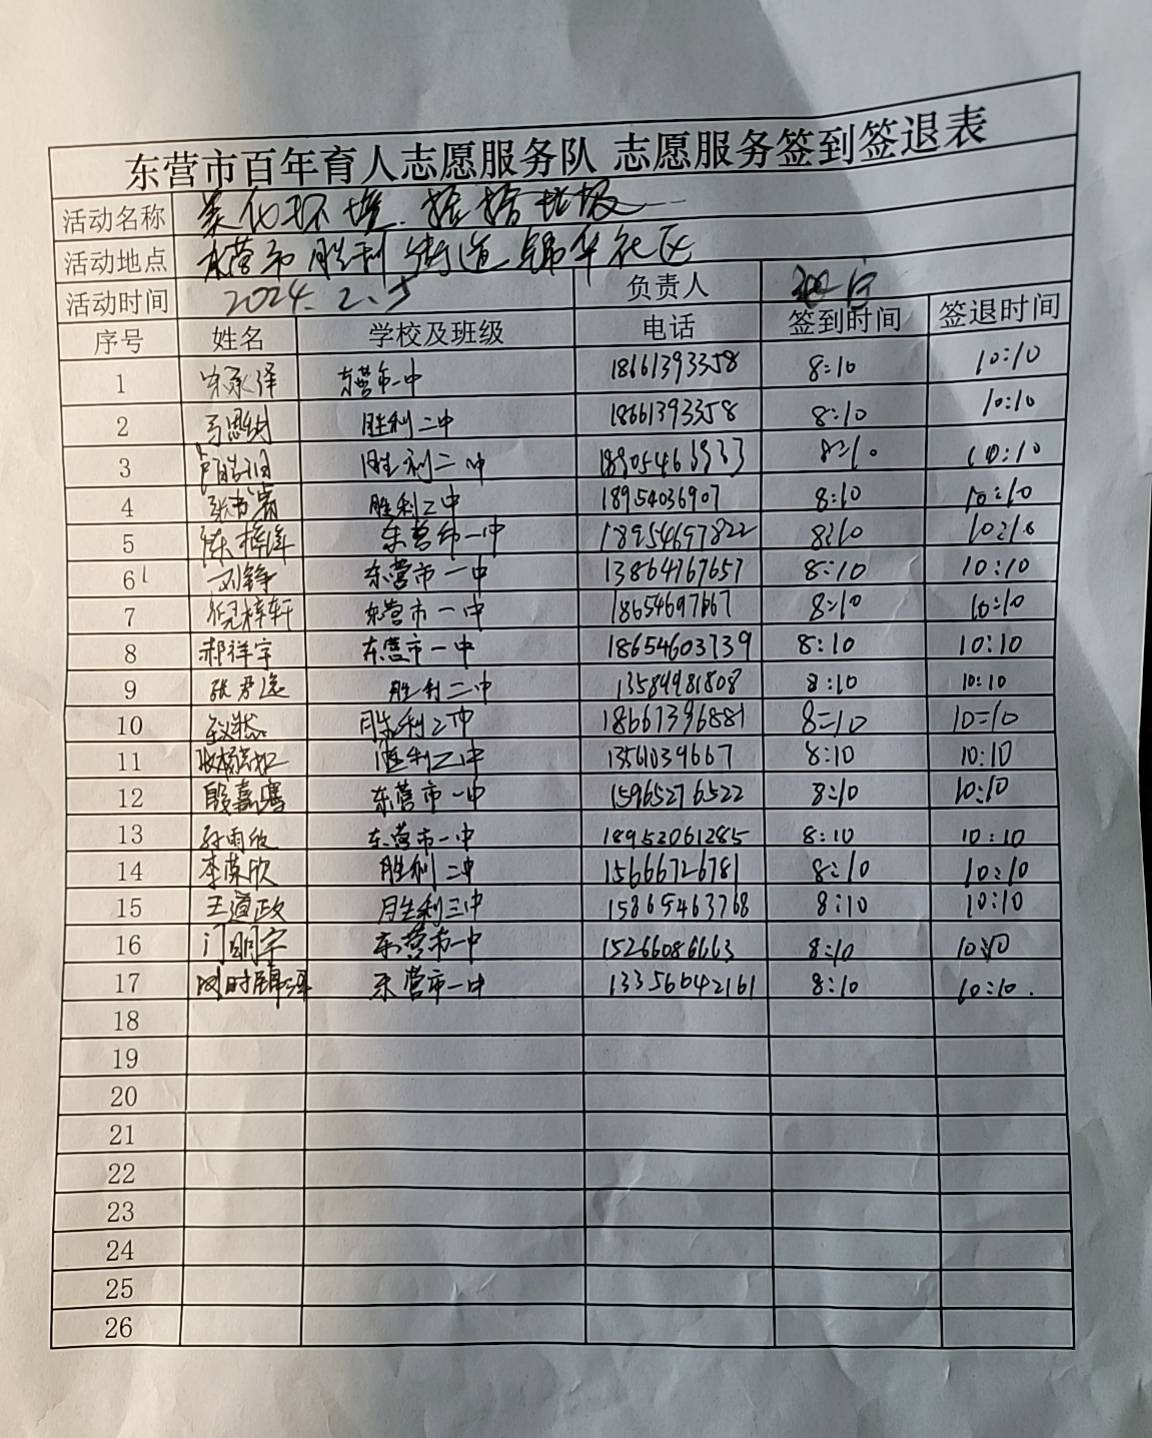 东营市百年育人志愿服务队 志愿服务签到签退表
活动名称 美化环境 捡拾垃圾
活动地点 东营市胜利街道锦华社区
活动时间 2024.2.5 负责人
序号 姓名 学校及班级 电话 签到时间 签退时间
1 宋承泽 东营市一中 18661393358 8:10 10:10
2 胜利二中 18661393358 8:10 10:10
3 胜利二中 18905463933 8:10 10:10
4 胜利二中 18954036907 8:10 10:10
5 陈梓泽 东营市一中 18954697822 8:10 10:10
6 刘铮 东营市一中 13864767657 8:10 10:10
7 倪梓轩 东营市一中 8:10 10:10
8 郝祥宇 东营市一中 18654603739 8:10 10:10
9 张君逸 胜利二中 13584981808 8:10 10:10
10 胜利二中 18661396881 8=10 10=10
11 胜利二中 13561039667 8:10 10:10
12 殷嘉骞 东营市一中 15965276522 8:10 10:10
13 孙雨欣 东营市一中 18953061285 8:10 10:10
14 李荣欣 胜利二中 15666726781 8:10 10:10
15 王道政 胜利三中 15865463768 8:10 10:10
16 门明宇 东营市一中 15266086663 8:10 10:10
17 东营市一中 13356042161 8:10 10:10.
18
19
20
21
22
23
24
25
26